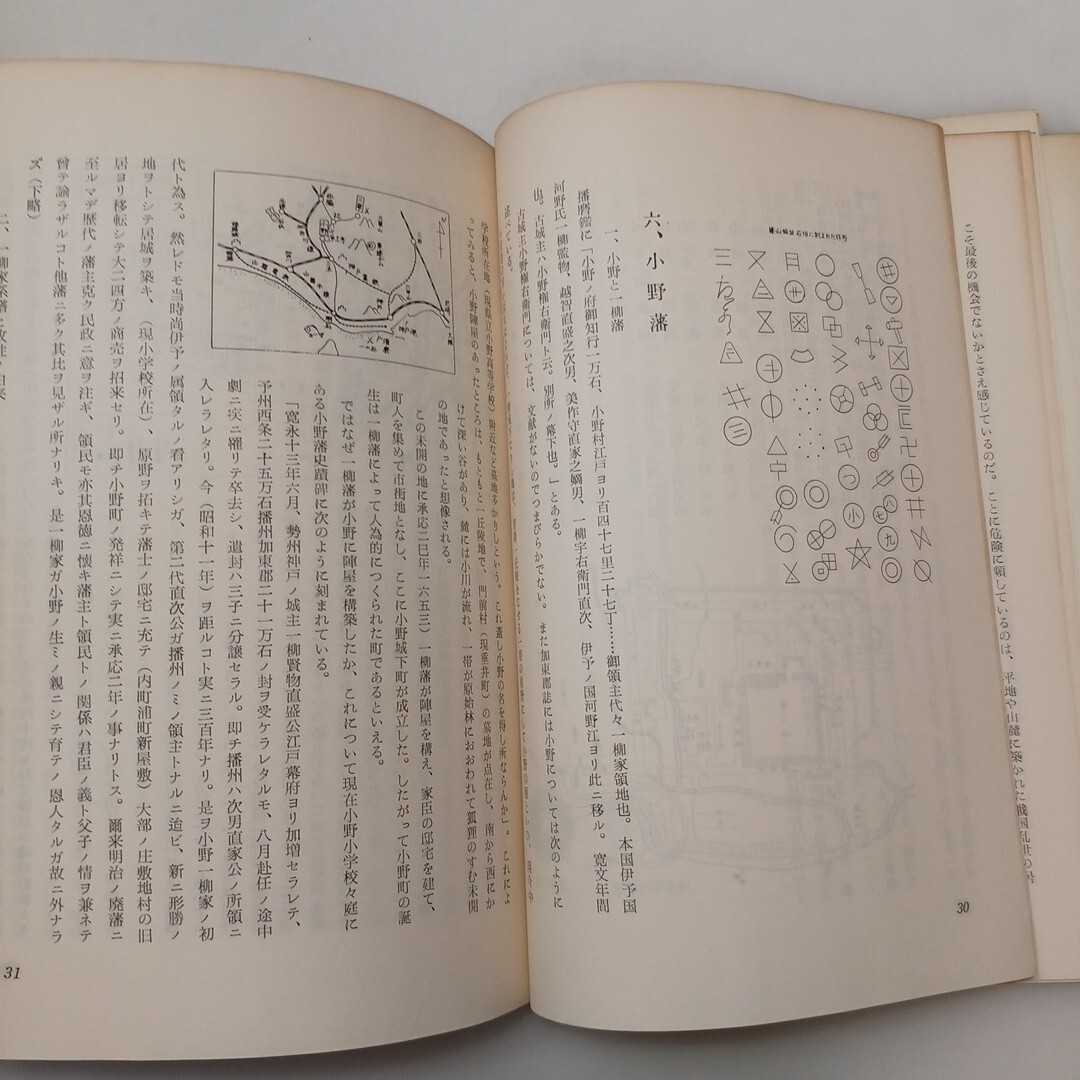 こそ最後の機会でないかとさえ感じているのだ。ここに危険に頻しているのは、平地や山麓に築かれた戦国乱世の居
30
六、小野藩
一、小野と一柳藩
播磨鑑に「小野ノ府御知行一万石、小野村江戸ヨリ百四十七里二十七丁……御領主代々一柳家領地也。本国伊予国
河野氏一柳監物、越智直盛之次男、美作守直家之嫡男、一柳宇右衛門直次、伊予ノ国河野江ヨリ此ニ移ル。寛文年間
也。古城主ハ小野権右衛門ト云。別所ノ幕下也。」とある。
古城主小野権右衛門については、文献がないのでつまびらかでない。また加東郡誌には小野については次のように
述べている。
学校所在地（現県立小野高等学校）附近など墓地多かりしという。これ蓋し小野の名を得し所ならんか」。これによ
ってみると、小野陣屋のあったところは、もともと一丘陵地で、門前村（現垂井町）の墓地が点在し、南から西にか
けて深い谷があり、麓には小川が流れ、一帯が原始林におおわれて狐狸のすむ未開
の地であったと想像される。
この未開の地に承応二巳年一六五三）一柳藩が陣屋を構え、家臣の邸宅を建て、
町人を集めて市街地となし、ここに小野城下町が成立した。したがって小野町の誕
生は一柳藩によって人為的につくられた町であるといえる。
ではなぜ一柳藩が小野に陣屋を構築したか、これについて現在小野小学校々庭に
ある小野藩史蹟碑に次のように刻まれている。
「寛永十三年六月、勢州神戸ノ城主一柳賢物直盛公江戸幕府ヨリ加増セラレテ、
予州西条二十五万石播州加東郡二十一万石ノ封ヲ受ケラレタルモ、八月赴任ノ途中
劇ニ実ニ罹リテ卒去シ、遺封ハ三子ニ分譲セラル。即チ播州ハ次男直家公ノ所領ニ
入レラレタリ。今（昭和十一年）ヲ距ルコト実ニ三百年ナリ。是ヲ小野一柳家ノ初
代ト為ス。然レドモ当時尚伊予ノ属領タルノ看アリシガ、第二代直次公ガ播州ノミノ領主トナルニ迨ビ、新ニ形勝ノ
地ヲトシテ居城ヲ築キ、（現小学校所在）、原野ヲ拓キテ藩士ノ邸宅ニ充テ（内町浦町新屋敷）大部ノ庄敷地村の旧
居ヨリ移転シテ大ニ四方ノ商売ヲ招来セリ。即チ小野町ノ発祥ニシテ実ニ承応二年ノ事ナリトス。爾来明治ノ廃藩ニ
至ルマデ歴代ノ藩主克ク民政ニ意ヲ注ギ、領民モ亦其恩徳ニ懐キ藩主ト領民トノ関係ハ君臣ノ義ト父子ノ情ヲ兼ネテ
曾テ諭ラザルコト他藩ニ多ク其比ヲ見ザル所ナリキ。是一柳家ガ小野ノ生ミノ親ニシテ育テノ恩人タルガ故ニ外ナラ
ズ（下略）
31